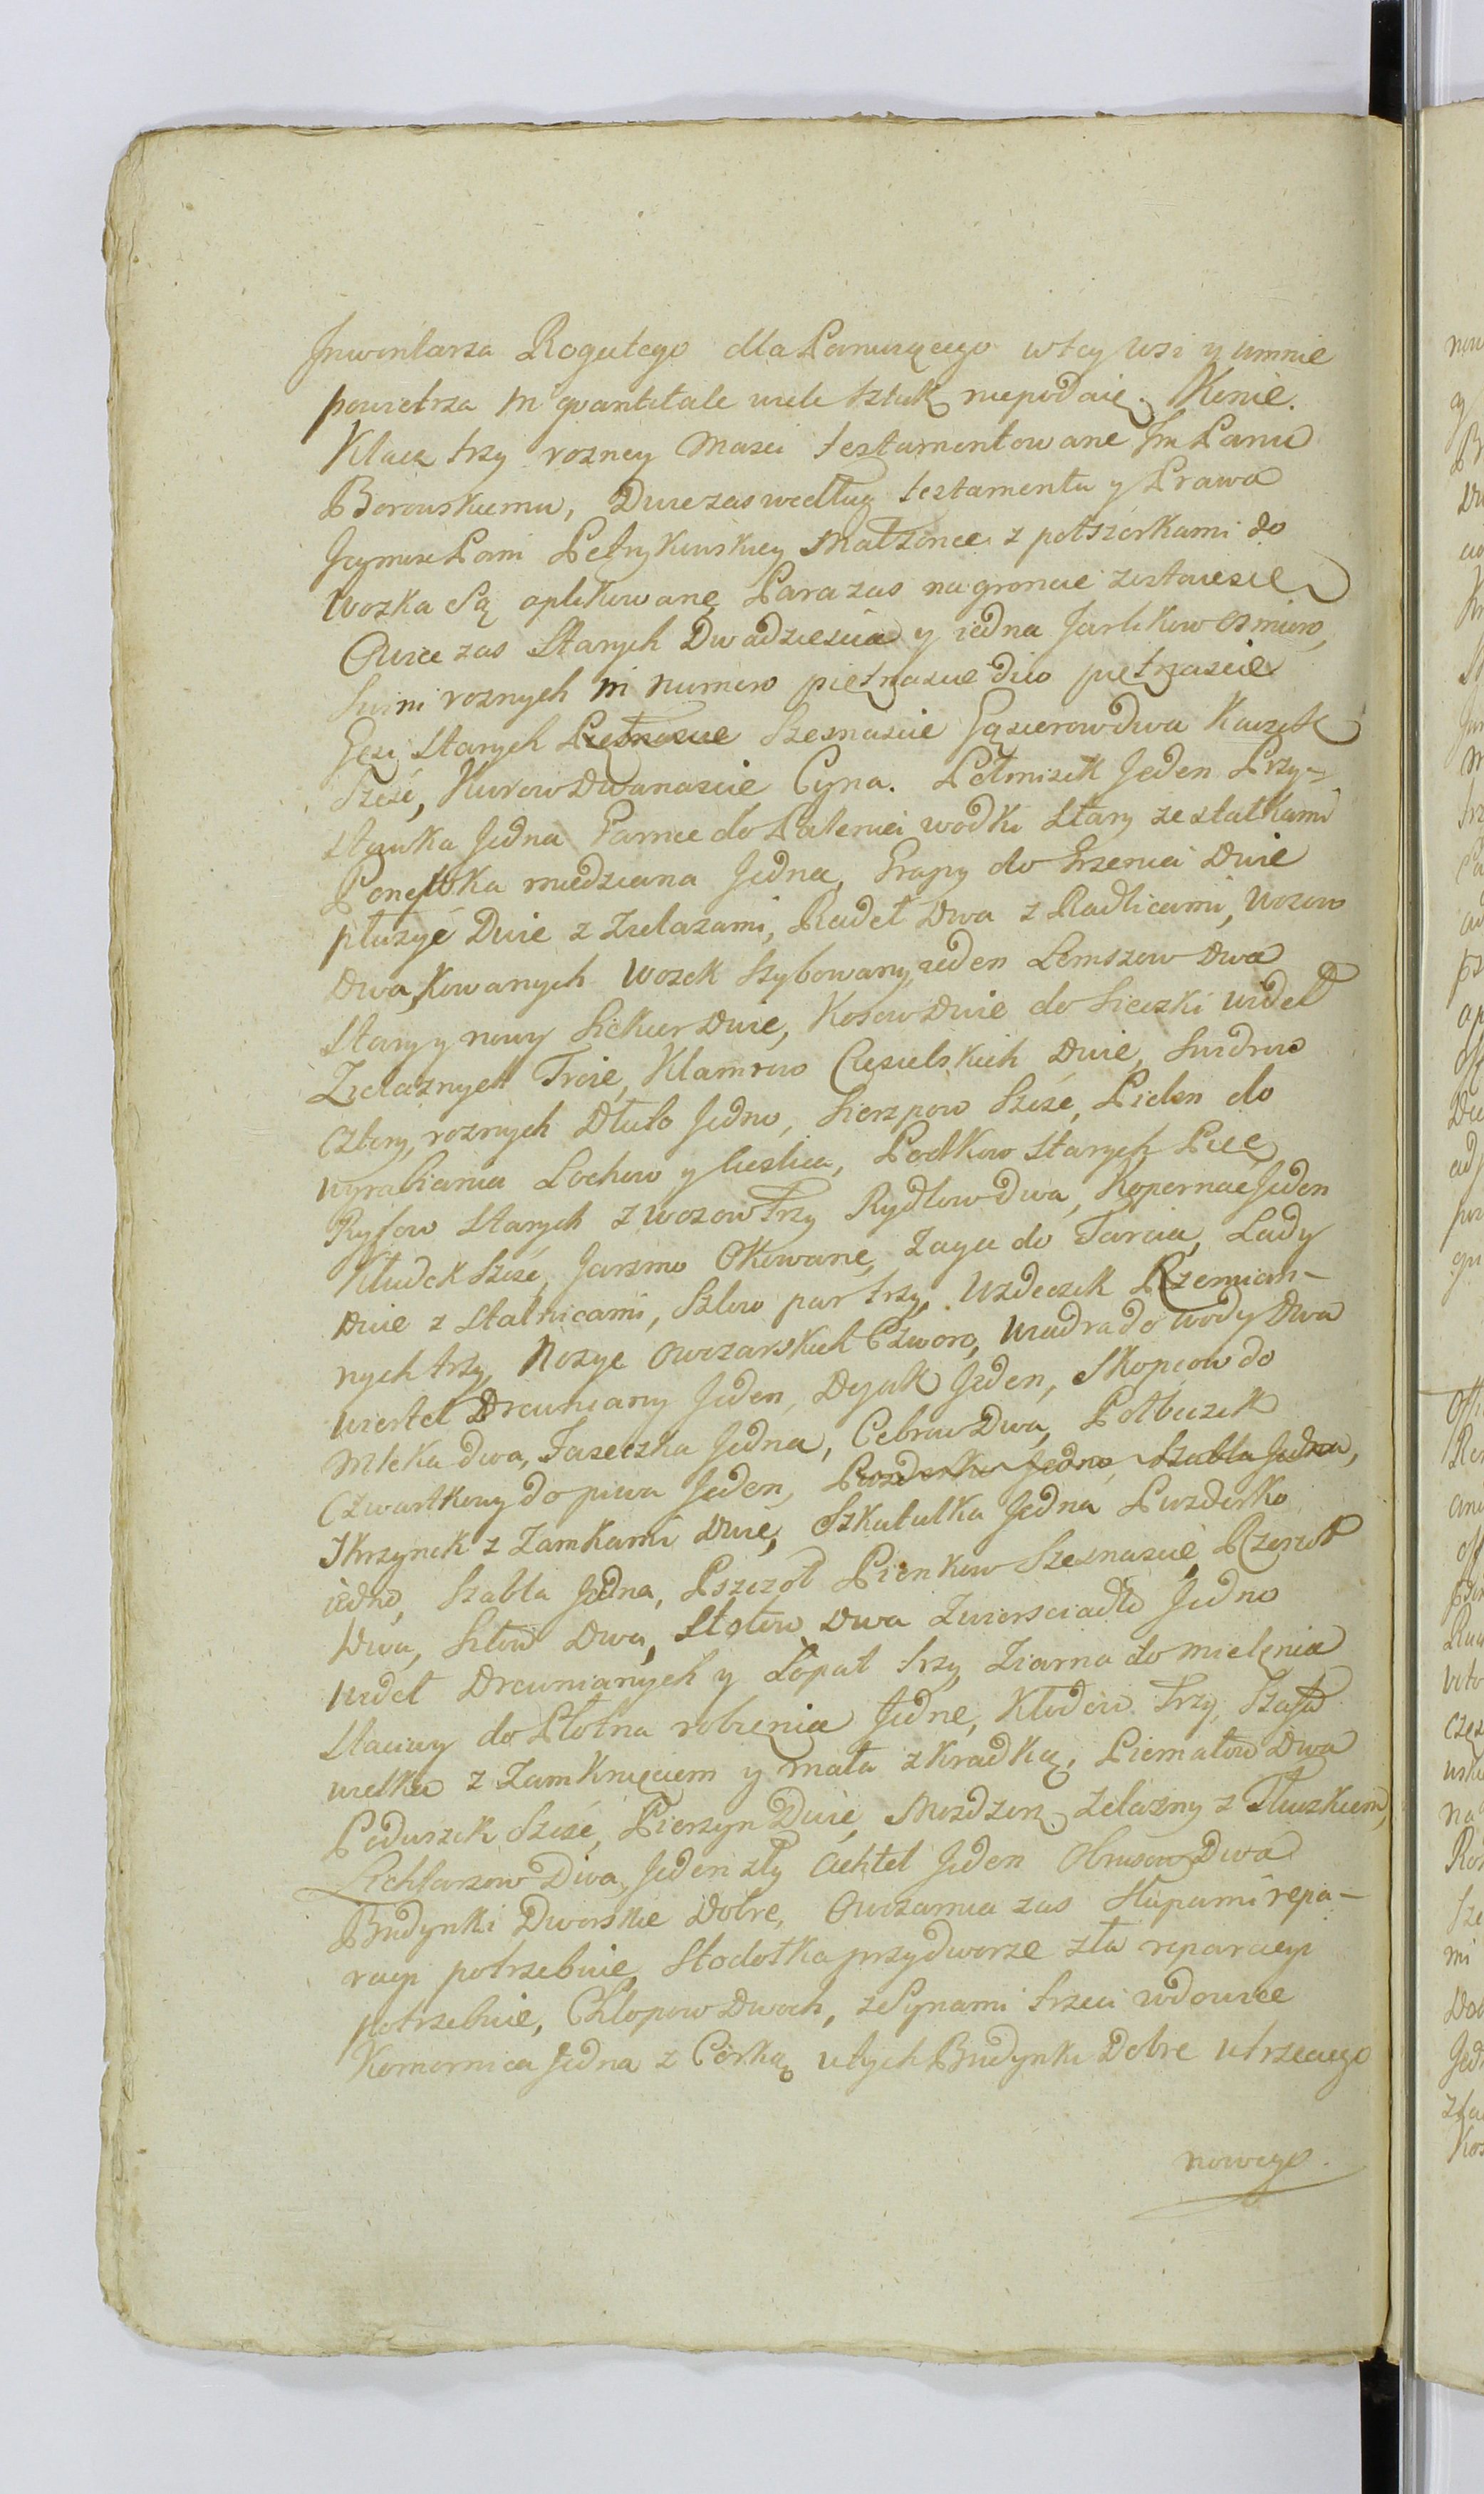 Inwentarza Rogatego dla Panuiącego w tey Wsi y umnie
powietrza in quantitate wiele sztuk niepodaię. Konie.
Klacz trzy rozney Masci testamentowane Im Panu
Borowskiemu, Dwie zas według testamentu y Prawa
Jeymosc Pani Petrykowskiey Małzonce z połszorkami do
Wozka Są aplikowane, Para zas na groncie zostaiesie
Owce zas Starych Dwadziescia y iedna Jarlikow osmioro,
Swini roznych in numero piętnascie diio piętnascie
Gęsi Starych Piętnascie Szesnascie Gąsierow dwa Kaczek
Szesć, Kurow Dwanascie Cyna. Połmisek Jeden Przy-
stawka Jedna Garnce do Palenia wodki Stary ze statkami
Ponewka miedziana Jedna, Grapy do Grzenia Dwie
płużyc Dwie z Zielazami, Radeł Dwa z Radlicami, Wozow
Dwa, Kowanych Wozek Szybowany ieden Lemszow Dwa
Stary y nowy Siekier Dwie, Kosow Dwie do Sieczki Wideł
Zielaznych Troie, Klamrow Ciesielskich Dwie, Swidrow
cztery, roznych Dłuto Jedno, Sierzpow Szesć, Pielon do
wyrabiania Lochow y Cieslica, Podkow Starych Pięc,
Ryfow Starych z Wozow Trzy Rydlow Dwa, Kopernac Jeden
Kłudek Szesć, Jarzmo Okowane, Zaga do Tarcia, Lady
Dwie z Stalnicami, Szlow par trzy, Uzdeczek Rzemian-
nych trzy, Nozyc owczarskich Czworo, Wiadra do wody Dwa
Wiertel Drewniany Jeden, Dyak Jeden, Skopcow do
Mleka dwa, Faseczka Jedna, Cebrow Dwa, Połbeczek
Czwartkowy do piwa Jeden, Puzderko Jedno, Szabla Jedna,
Skrzynek z Zamkami Dwie, Szkatulka Jedna Puzderko
iedno, Szabla Jedna, Pszczoł Pienkow Szesnascie, Rzeszot
Dwa, Sitow Dwa, Stołow Dwa Zwiersciadło Jedno
Wideł Drewnianych y Łopat trzy, Ziarna do mielęnia
Staciwy do Płotna robienia Jedne, Kłodow Trzy, Szafa
wielka z Zamknięciem y mała z Kradką, Piematow Dwa
Poduszek Szesć, Pierzyn Dwie, Mozdzerz Zelazny z Tłuczkiem,
Lichtarzow Dwa, Jeden zły Achtel Jeden Obrusow Dwa
Budynki Dworskie Dobre, Owczarnia zas Słupami repa-
racyi potrzebuie, Stodołka przy dworze zła reparacyi
potrzebuie, Chłopow Dwoch, ze Synami trzeci wdowiec
Komornica Jedna z Corką, u tych Budynki Dobre u trzeciego
nowego.